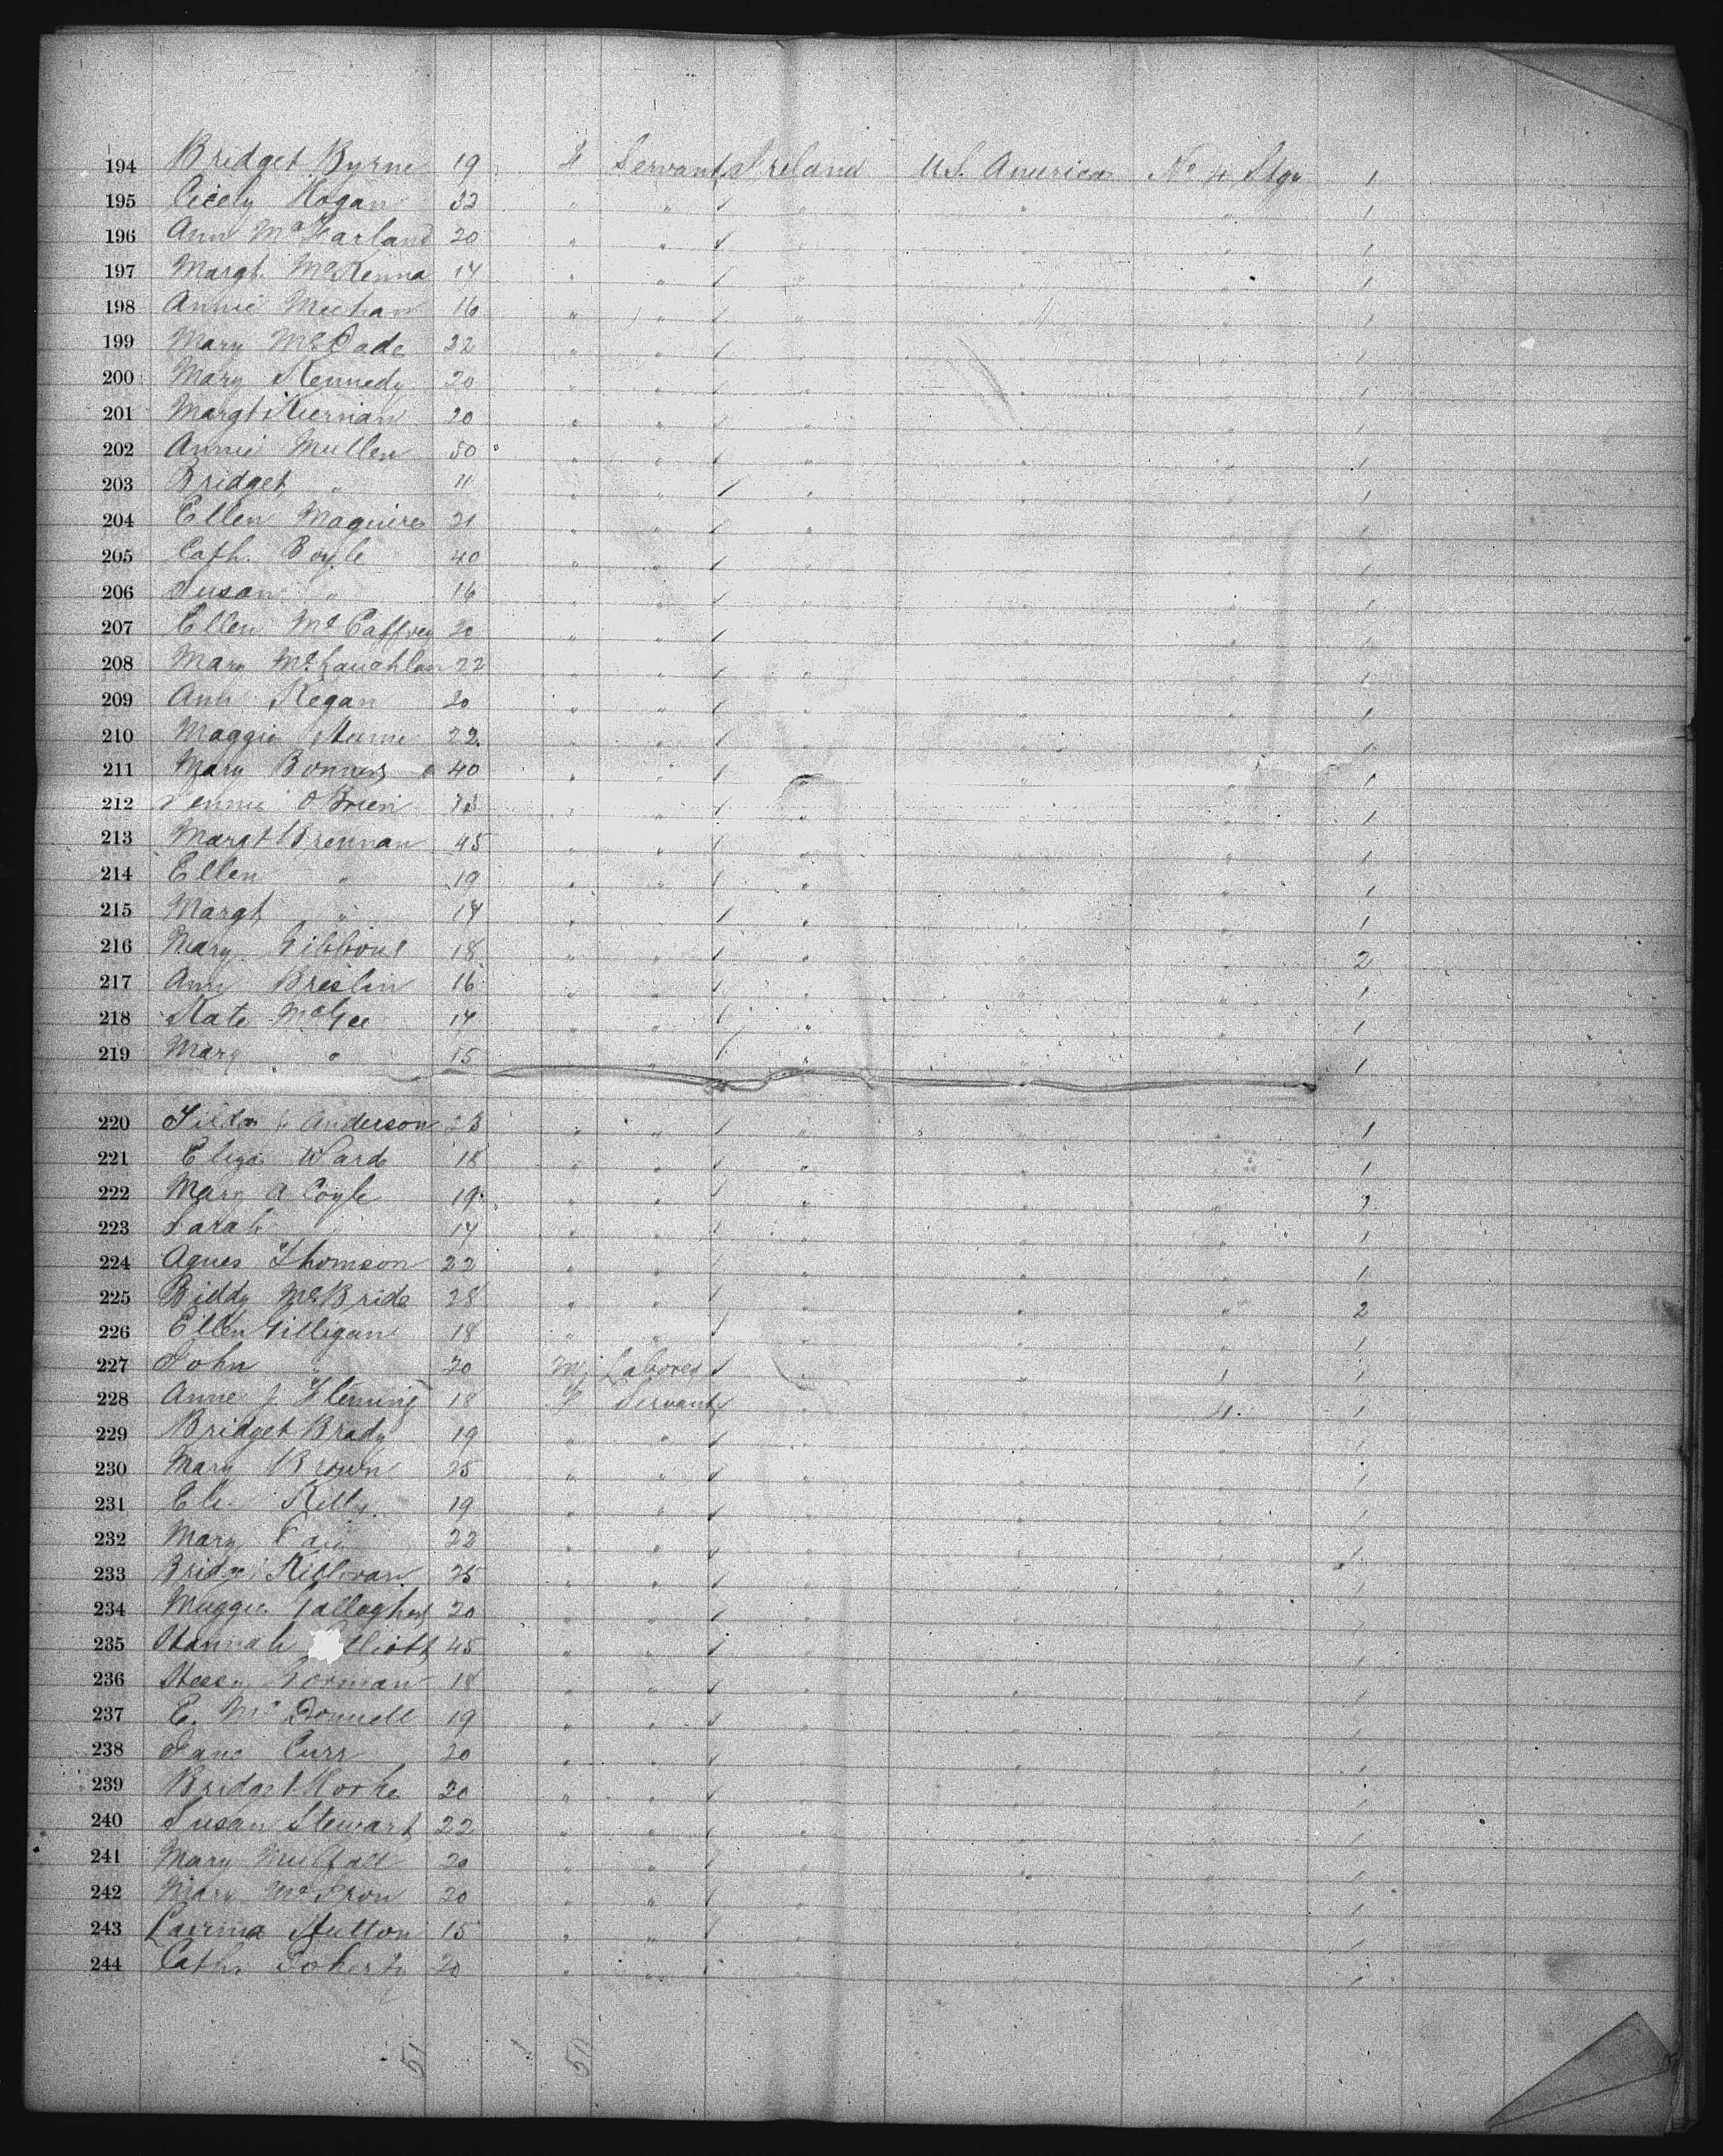 194 Bridget Byrne 19 F Servant Ireland U.S. America No 4 Stge 1
195 Cicely Hogan 32 " " " " " 1
196 Ann McFarland 20 " " " " " 1
197 Margt. McKenna 17 " " " " " 1
198 Annie Meehan 16 " " " " " 1
199 Mary McDade 22 " " " " " 1
200 Mary Kennedy 20 " " " " " 1
201 Margt Kiernan 20 " " " " " 1
202 Annie Mullen 50 " " " " " 1
203 Bridget " 11 " " " " " 1
204 Ellen Maguire 21 " " " " " 1
205 Cath. Boyle 40 " " " " " 1
206 Susan " 16 " " " " " 1
207 Ellen McCaffrey 20 " " " " " 1
208 Mary McLaughlan 22 " " " " " 1
209 Ann Kegan 20 " " " " " 1
210 Maggie 22 " " " " " 1
211 Mary Bonner 40 " " " " " 1
212 O'Brien " " " " " 1
213 Margt Brennan 45 " " " " " 1
214 Ellen " 19 " " " " " 1
215 Margt " 14 " " " " " 1
216 Mary Gibbons 18 " " " " " 2
217 Ann Breslin 16 " " " " " 1
218 Kate McGee 17 " " " " " 1
219 Mary " 15 " " " " " 1
220 Anderson 23 " " " " " 1
221 Eliza Ward 18 " " " " " 1
222 Mary A Coyle 19 " " " " "
223 Sarah " 17 " " " " " 1
224 Agnes Thomson 22 " " " " " 1
225 Biddy McBride 28 " " " " " 2
226 Ellen Gilligan 18 " " " " " 1
227 John " 20 M Laborer " " 1 1
228 Anne J. Fleming 18 F Servant " " 4 1
229 Bridget Brady 19 " " " " " 1
230 Mary Brown 25 " " " " " 1
231 Kelly 19 " " " " " 1
232 Mary 22 " " " " " 1
233 Bridget 25 " " " " " 1
234 Maggie Gallagher 20 " " " " " 1
235 Hannah lliott 45 " " " " " 1
236 Gorman 18 " " " " " 1
237 E. McDonnell 19 " " " " " 1
238 Jane Curr 20 " " " " " 1
239 Bridget 20 " " " " " 1
240 Susan Stewart 22 " " " " " 1
241 Mary Mulfall 20 " " " " " 1
242 Mary 20 " " " " " 1
243 Hutton 15 " " " " " 1
244 Cath. Doherty 20 " " " " " 1
51 1 50